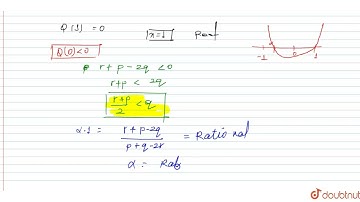 Q(1) = 0
x=1
Root
Q(0)<0
-1 α 0 1
r+p-2q <0
r+p < 2q
r+p/2 < q
α.1 = r+p-2q/p+q-2r = Rational
α =
doubtnut